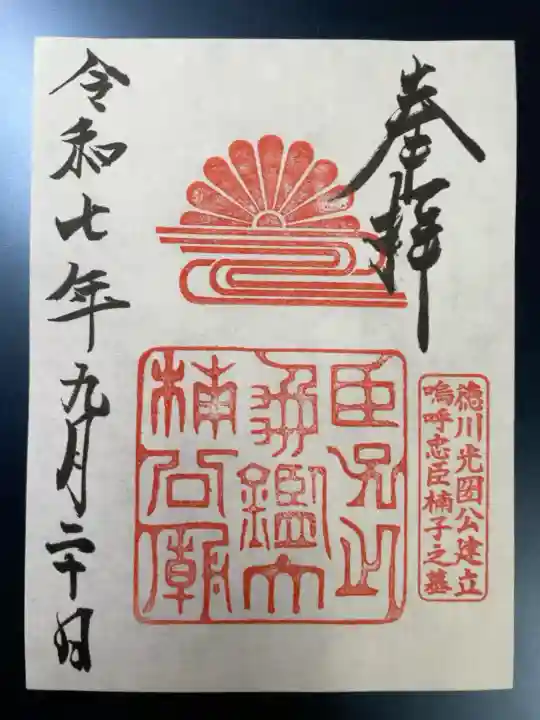 奉拝
徳川光圀公建立
嗚呼忠臣楠子之墓
楠公
令和七年九月二十日